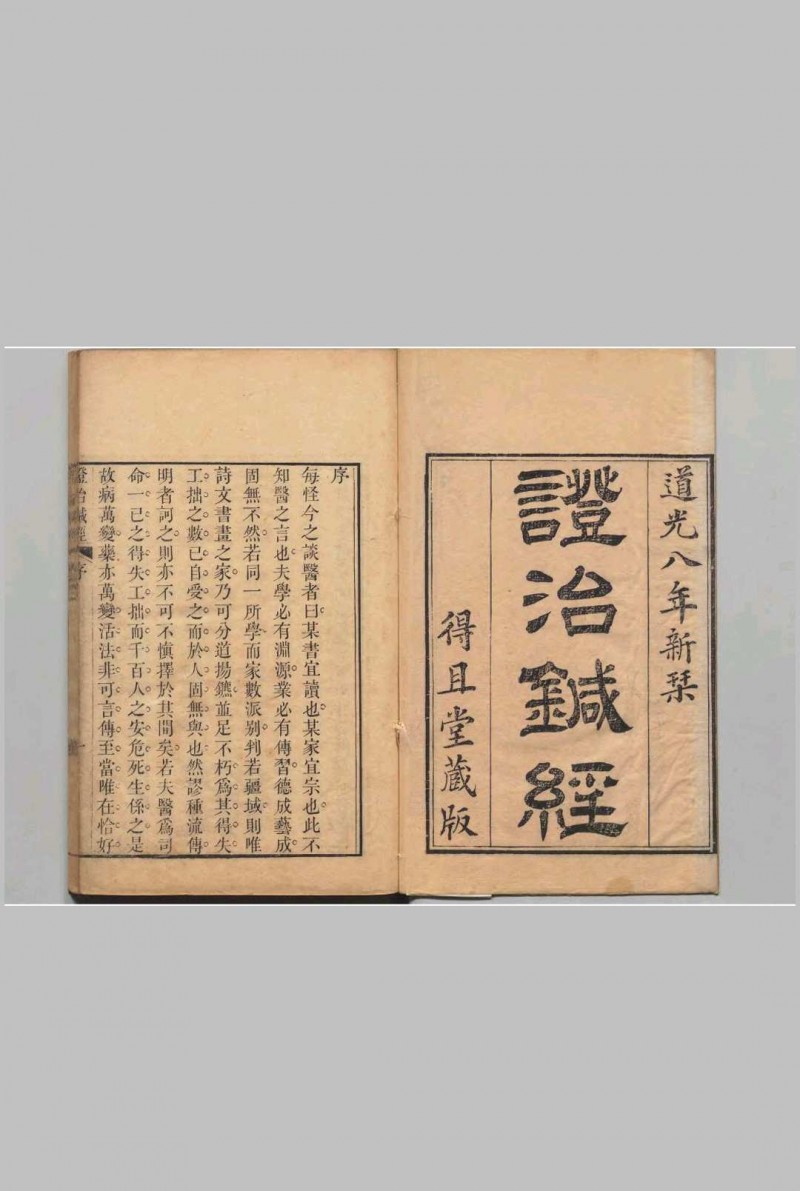 道光八年新栞
證治鍼經
得且堂藏版
序
每怪今之談醫者曰某書宜讀也某家宜宗也此不
知醫之言也夫學必有淵源業必有傳習德成藝成
固無不然若同一所學而家數派别判若疆域則唯
詩文書畫之家乃可分道揚鑣並足不朽爲其得失
工拙之數已自受之而於人固無與也然謬種流傳
明者訶之則亦不可不慎擇於其間矣若夫醫爲司
命一已之得失工拙而千百人之安危死生係之是
故病萬變藥亦萬變活法非可言傳至當唯在恰好
證治鍼經 序 一